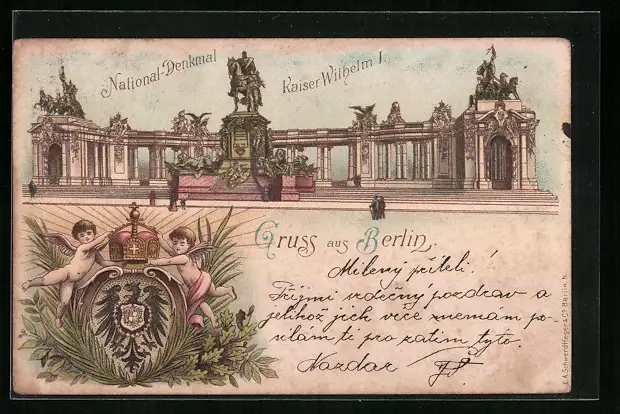 National-Denkmal
Kaiser Wilhelm I.
Gruss aus Berlin.
Milený příteli!
Přijmi srdečný pozdrav a
jelikož jich více nemám po-
sílám ti pro zatím tyto.
Nazdar
E.A. Schwerdtfeger & Co. Berlin, N.